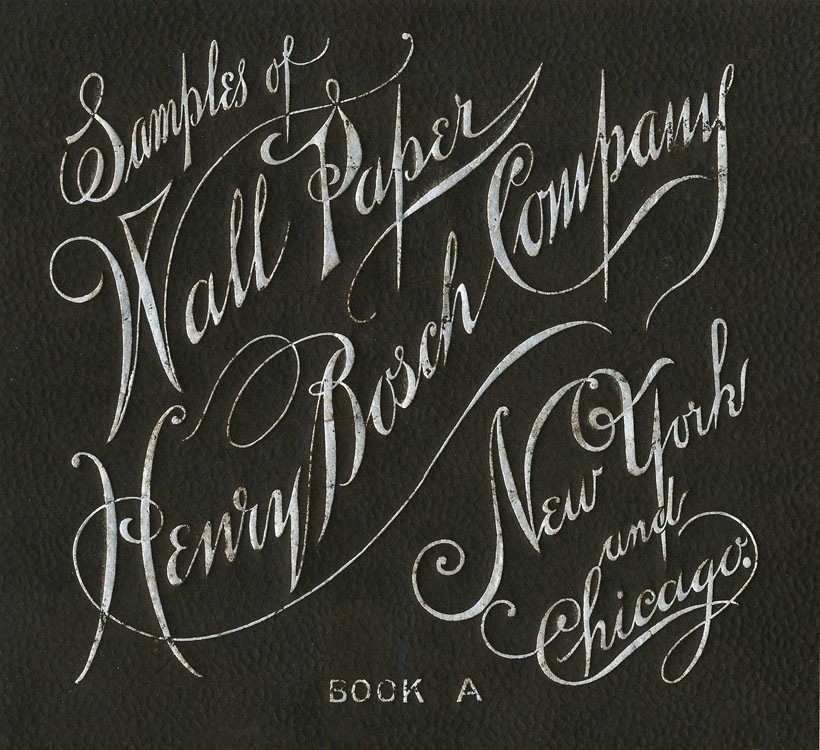 Samples of
Wall Paper
Henry Bosch Company
New York
and
Chicago.
BOOK A